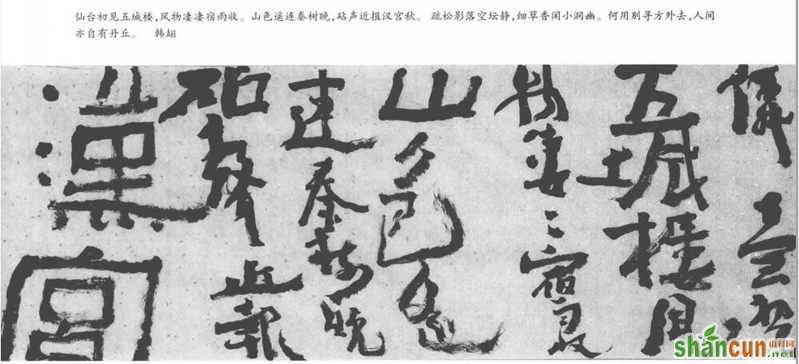 仙台初见五城楼,风物凄凄宿雨收。山色遥连秦树晚,砧声近报汉宫秋。 疏松影落空坛静,细草香闲小洞幽。何用别寻方外去,人间
亦自有丹丘。 韩翃
臺初
五城樓風
物凄〻宿雨收
山色遥
連秦樹晚
砧聲近報
漢宮
shancun
山村网
.net